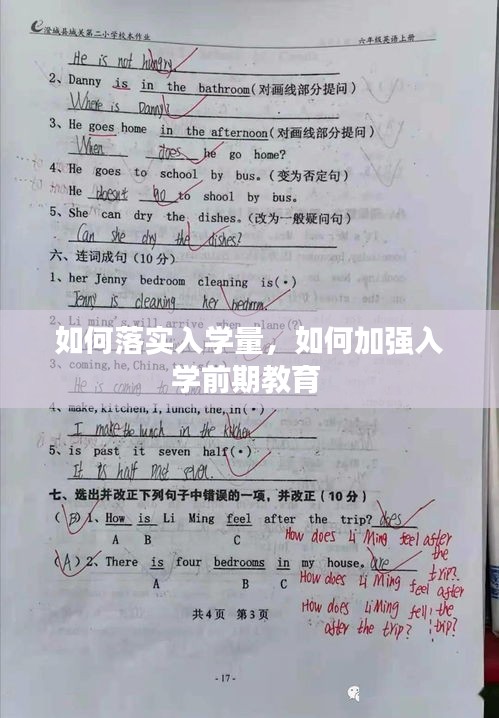 澄城县城关第二小学校本作业 六年级英语上册
He is not hungry
2、Danny is in the bathroom(对画线部分提问)
Where is Danny?
3、He goes home in the afternoon(对画线部分提问)
When does he go home?
4、He goes to school by bus。(变为否定句)
He doesn't go to shool by bus.
5、She can dry the dishes。(改为一般疑问句)
Can she dry the dishes?
六、连词成句(10分)
1、her Jenny bedroom cleaning is(·)
Jenny is cleaning her bedroom.
2、Li ming's,will arrive
如何落实入学量，如何加强入
学前期教育
3、coming,he,China,
He is coming
4、make,kitchen,I,lunch,the,in(·)
I make the lunch in the kitchen
5、is past it seven half(·)
It is half past seven.
七、选出并改正下列句子中错误的一项，并改正(10分)
(B)1、How is Li Ming feel after the trip? does
A B C
How does Li Ming feel after the trip?
(A)2、There is four bedrooms in my house. are
A B C
How does Li Ming feel after the trip?
How does Li Ming fell after the trip?
共4页 第3页
-17-